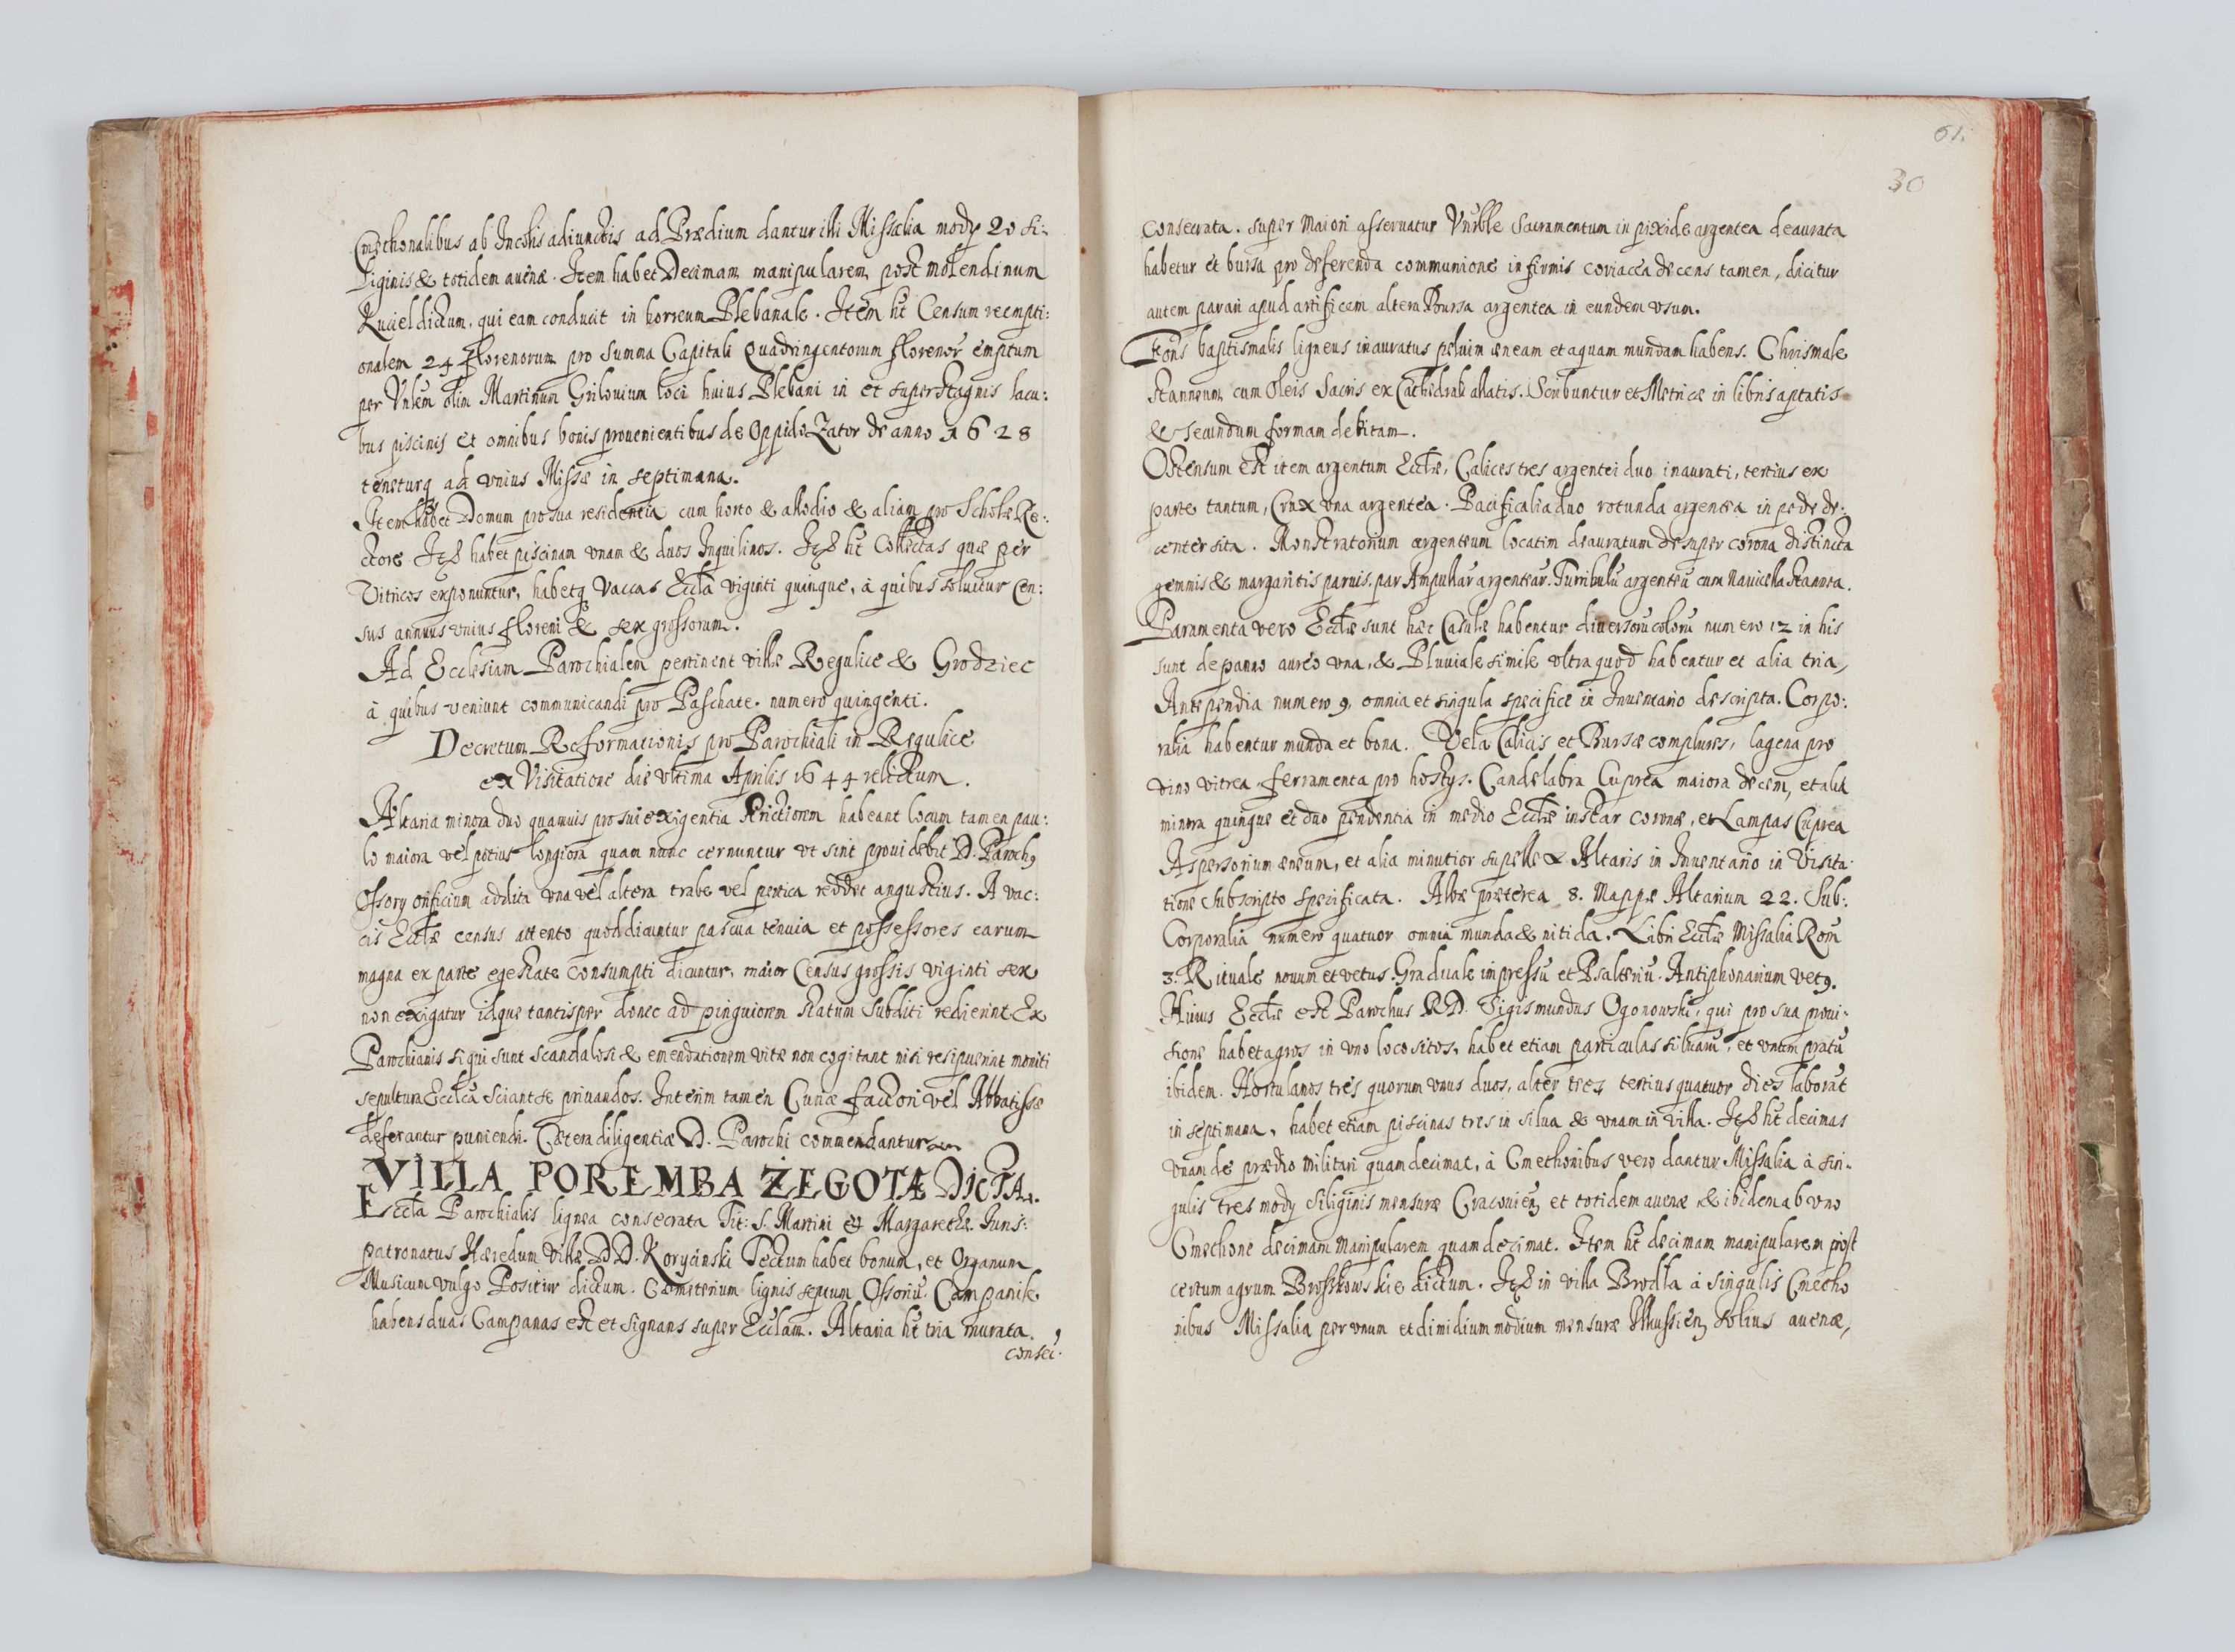 Cmethonalibus ab Incolis adiunctis ad Prædium dantur illi Missalia modÿ 20 si:
liginis & totidem auenæ. Item habet Decimam manipularem post molendinum
Kuciel dictum, qui eam conducit in horreum Plebanale. Item ht Censum reempti:
onalem 24 florenorum pro summa Capitali Quadringentorum florenor emptum
per Vnlem olim Martinum Grilouium loci huius Plebani in et super stagnis lacu:
bus piscinis et omnibus bonis prouenientibus de Oppido Zator de anno 1628
teneturq ad vnius Missæ in septimana.
Item habet Domum pro sua residentia cum horto & allodio & aliam pro Scholæ Re:
ctore Itē habet piscinam vnam & duos Inquilinos. Itē ht Collectas quæ per
Vitricos exponuntur, habetq vaccas Eccla viginti quinque, à quibus soluitur Cen:
sus annuus vnius floreni & sex grossorum.
Ad Ecclesiam Parochialem pertinent villæ Regulice & Grodziec
à quibus veniunt communicandi pro Paschate numero quingenti.
Decretum Reformationis pro Parochiali in Regulice
ex Visitatione die vltima Aprilis 1644 relictum.
Altaria minora duo quamuis pro sui exigentia strictiorem habeant locum tamen pau:
lo maiora vel potius longiora quam nunc cernuntur vt sint prouidebit D. Paroch9
Ossorÿ orificium addita vna vel altera trabe vel pertica reddet angustius. A vac:
cis Eccłæ census attento quod dicuntur pascua tenuia et possessores earum
magna ex parte egestate consumpti dicuntur, maior Census grossis viginti sex
non exigatur idque tantisper donec ad pinguiorem statum subditi redierint Ex
Parochianis si qui sunt scandalosi & emendationem vitæ non cogitant nisi resipuerint moniti
sepultura Ecclca sciant se priuandos. Interim tamen Curiæ factori vel Abbatissæ
deferantur puniendi. Cætera diligentiæ D. Parochi commendantur
VILLA POREMBA ŻEGOTÆ DICTA.
Eccla Parochialis lignea consecrata Tit: S. Martini & Margarethæ. Iuris:
patronatus Hæredum villæ DD. Koryćinski Tectum habet bonum, et Organum
Musicum vulgo Positiw dictum. Cæmiterium lignis septum Ossoriū. Campanile
habens duas Campanas est et signans super Ecclam. Altaria ht tria murata.
consec:
61.
30
consecrata. super Maiori asseruatur Vnrble Sacramentum in pixide argentea deaurata
habetur et bursa pro deferenda communione infirmis coriacea decens tamen, dicitur
autem parari apud artificem altera Bursa argentea in eundem vsum.
Fons baptismalis ligneus inauratus peluim æneam et aquam mundam habens. Chrismale
stanneum cum Oleis Sacris ex Cathedrali allatis. Scribuntur et Metricæ in libris aptatis
& secundum formam debitam.
Ostensum est item argentum Eccłæ, Calices tres argentei duo inaurati, tertius ex
parte tantum, Crux vna argentea. Pacificalia duo rotunda argentea in pede de:
center sita. Monstratorium argenteum locatim deauratum desuper corona distincta
gemmis & margaritis paruis. par Ampullar argentear. Turribulū argenteū cum nauicella stannea.
Paramenta vero Eccłæ sunt hæc Casulæ habentur diuersorū colorū numero 12 in his
sunt de panno aureo vna, & Pluuiale simile vltra quod habentur et alia tria,
Antependia numero 9, omnia et singula specifice in Inuentario descripta. Corpo:
ralia habentur munda et bona. Vela Calicis et Bursæ complures, lagena pro
vino vitrea ferramenta pro hostÿs. Candelabra Cuprea maiora decem, et alia
minora quinque et duo pendentia in medio Eccłæ instar coronæ, et Lampas Cuprea
Aspersorium æneum, et alia minutior supellex Altaris in Inuentario in Visita:
tione subscripto specificata. Albæ præterea 8. Mappæ Altarium 22. Sub:
Corporalia numero quatuor omnia munda & nitida. Libri Eccłæ Missalia Rom
3. Rituale nouum et vetus. Graduale impressū et Psalteriū. Antiphonarium vet9.
Huius Eccłæ est Parochus RD. Sigismundus Ogonowski, qui pro sua proui:
sione habet agros in vno loco sitos, habet etiam particulas siluarū, et vnum pratū
ibidem. Hortulanos tres quorum vnus duos, alter tres tertius quatuor dies laborat
in septimana, habet etiam piscinas tres in silua & vnam in villa. Itē ht decimas
vnam de prædio militari quam decimat, à Cmethonibus vero dantur Missalia à sin:
gulis tres modÿ siliginis mensuræ Cracouien et totidem auenæ & ibidem ab vno
Cmethone decimam manipularem quam decimat. Item ht decimam manipularem post
certum agrum Brosskowskie dictum. Itē in villa Brodła à singulis Cmetho
nibus Missalia per vnum et dimidium modium mensuræ solius auenæ,